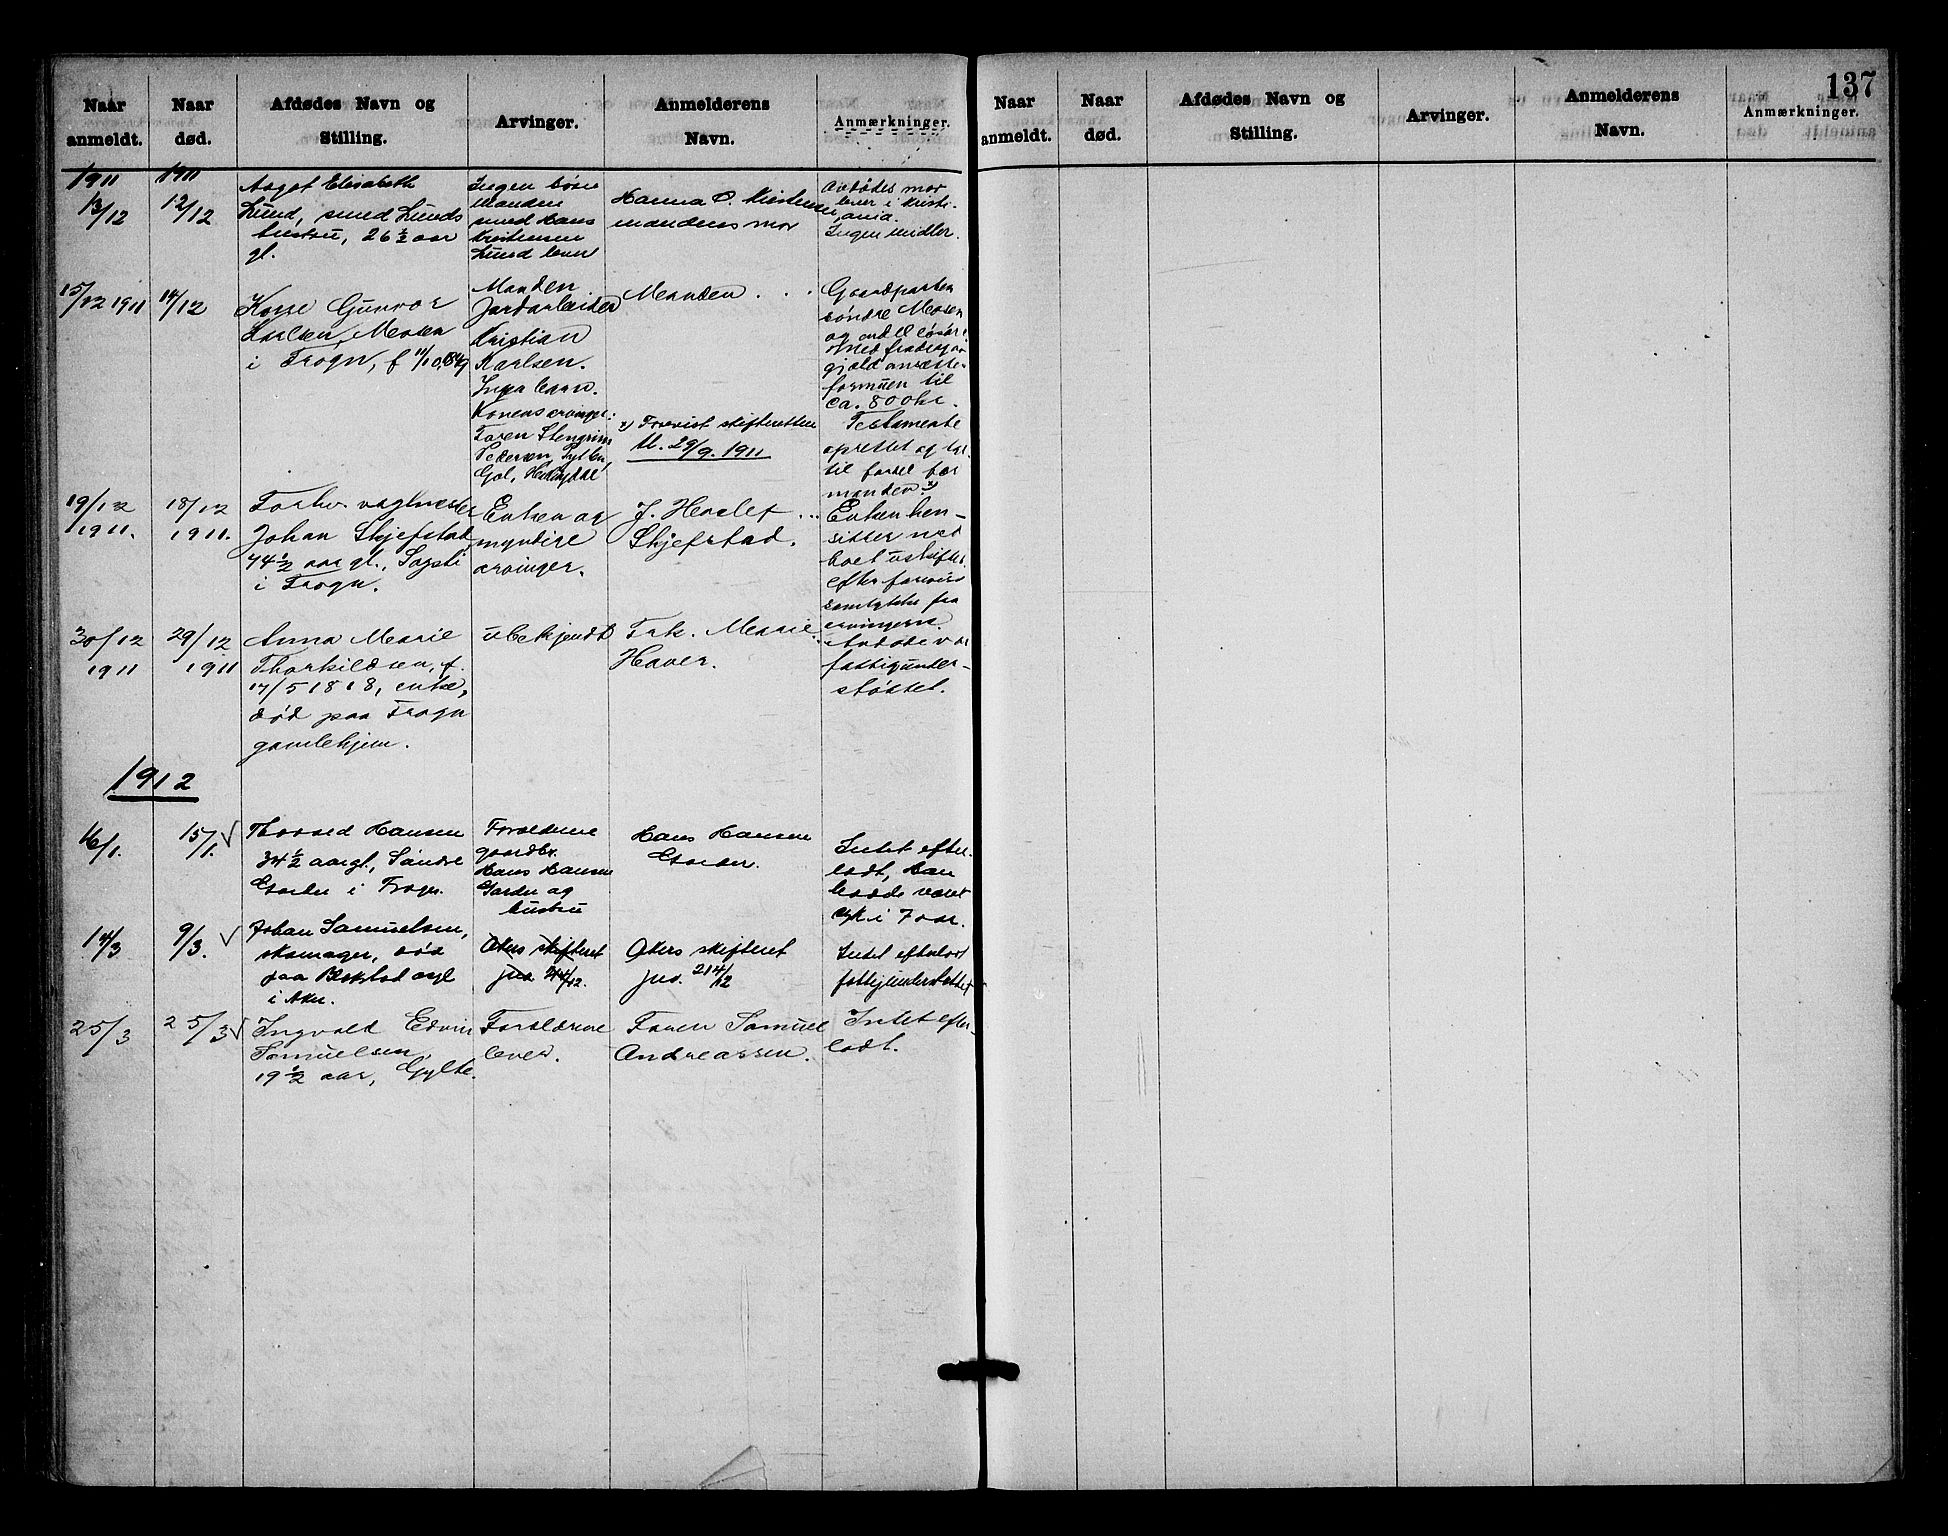 Naar anmeldt. Naar død. Afdødes Navn og Stilling. Arvinger. Anmelderens Navn. Anmærkninger.
1911 1911
13/12 12/12
Aagot Elisabeth
Lund, smed Lunds
hustru, 26 ½ aar
gl.
Ingen børn
Manden
smed Hans
Kristensen
Lund lever
Hanna O. Kristensen
mandens mor
Avdødes mor
lever i Kristi-
ania.
Ingen midler.
15/12 1911 14/12
Gunvor
Karlsen, Mosen
i Frogn, f 11/10 1849
Manden
Jordarbeider
Kristian
Karlsen.
Inga barn.
Konens arvinger:
Stengrim
Pedersen
Gol,
Manden . . .
x) Forevist skifteretten
d. 29/9. 1911
Gaardparten
søndre Mosen
og endel løsøre.
Med fradrag av
gjæld ansættes
formuen til
ca. 800 kr.
Testamente
oprettet og
til fordel for
manden x)
19/12
1911.
18/12
1911.
Forhv. vagtmester
Johan Skjefstad
74 ½ aar gl., Sogsti
i Frogn.
Enken og
myndige
arvinger.
J.
Skjefstad.
Enken hen-
sitter med
boet uskiftet
efter
samtykke fra
arvingerne
30/12
1911
29/12
1911
Anna Marie
Thorkildsen, f.
17/5 1818, enke,
død paa Frogn
gamlehjem.
ubekjendt
Frk. Marie
Haver.
Avdøde var
fattigunder-
støttet.
1912
16/1. 15/1. √
Thorvald Hansen
34 ½ aar gl., Søndre
Garder i Frogn.
Forældrene
gaardbr.
Hans Hansen
Garder og
hustru
Hans Hansen
Garder.
Intet efter-
ladt, Han
hadde været
syk i 7 aar.
14/3 9/3. √
Johan Samuelsen,
skomager, død
paa Blakstad asyl
i Aker.
Akers skifteret
jno. 214/12.
Akers skifteret
jno. 214/12
Intet efterladt
fattigunderstøttet
25/3 25/3 √
Ingvald Edvin
Samuelsen,
19 ½ aar, Gylte.
Forældrene
lever.
Faren Samuel
Andreassen.
Intet efter-
ladt.
137
Naar anmeldt. Naar død. Afdødes Navn og Stilling. Arvinger. Anmelderens Navn. Anmærkninger.